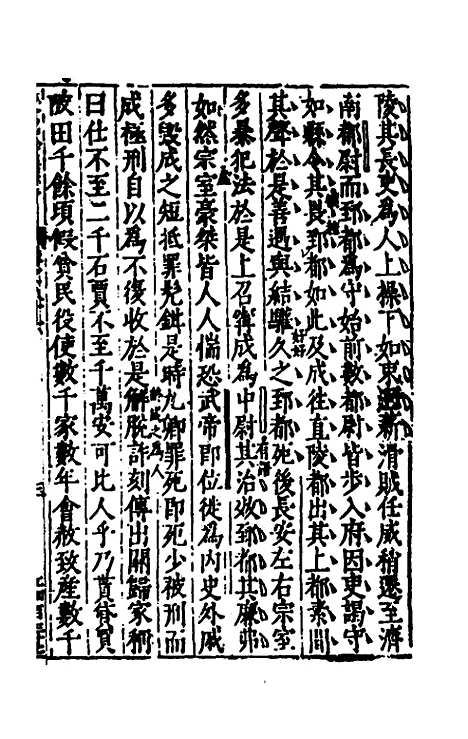 陵其長吏為人上操下如束濕薪滑賊任威稍遷至濟
南都尉而郅都為守始前數都尉皆步入府因吏謁守
如縣令其畏郅都如此及成往直陵都出其上都素聞
其聲於是善遇與結驩久之郅都死後長安左右宗室
多暴犯法於是上召寗成為中尉其治效郅都其廉弗
如然宗室豪桀皆人人惴恐武帝即位徙為内史外戚
多毀成之短抵罪髡鉗是時九卿罪死即死少被刑而
成極刑自以為不復收於是解脫詐刻傳出關歸家稱
曰仕不至二千石賈不至千萬安可比人乎乃貰貸買
陂田千餘頃假貧民役使數千家數年會赦致産數千
好好
有酒